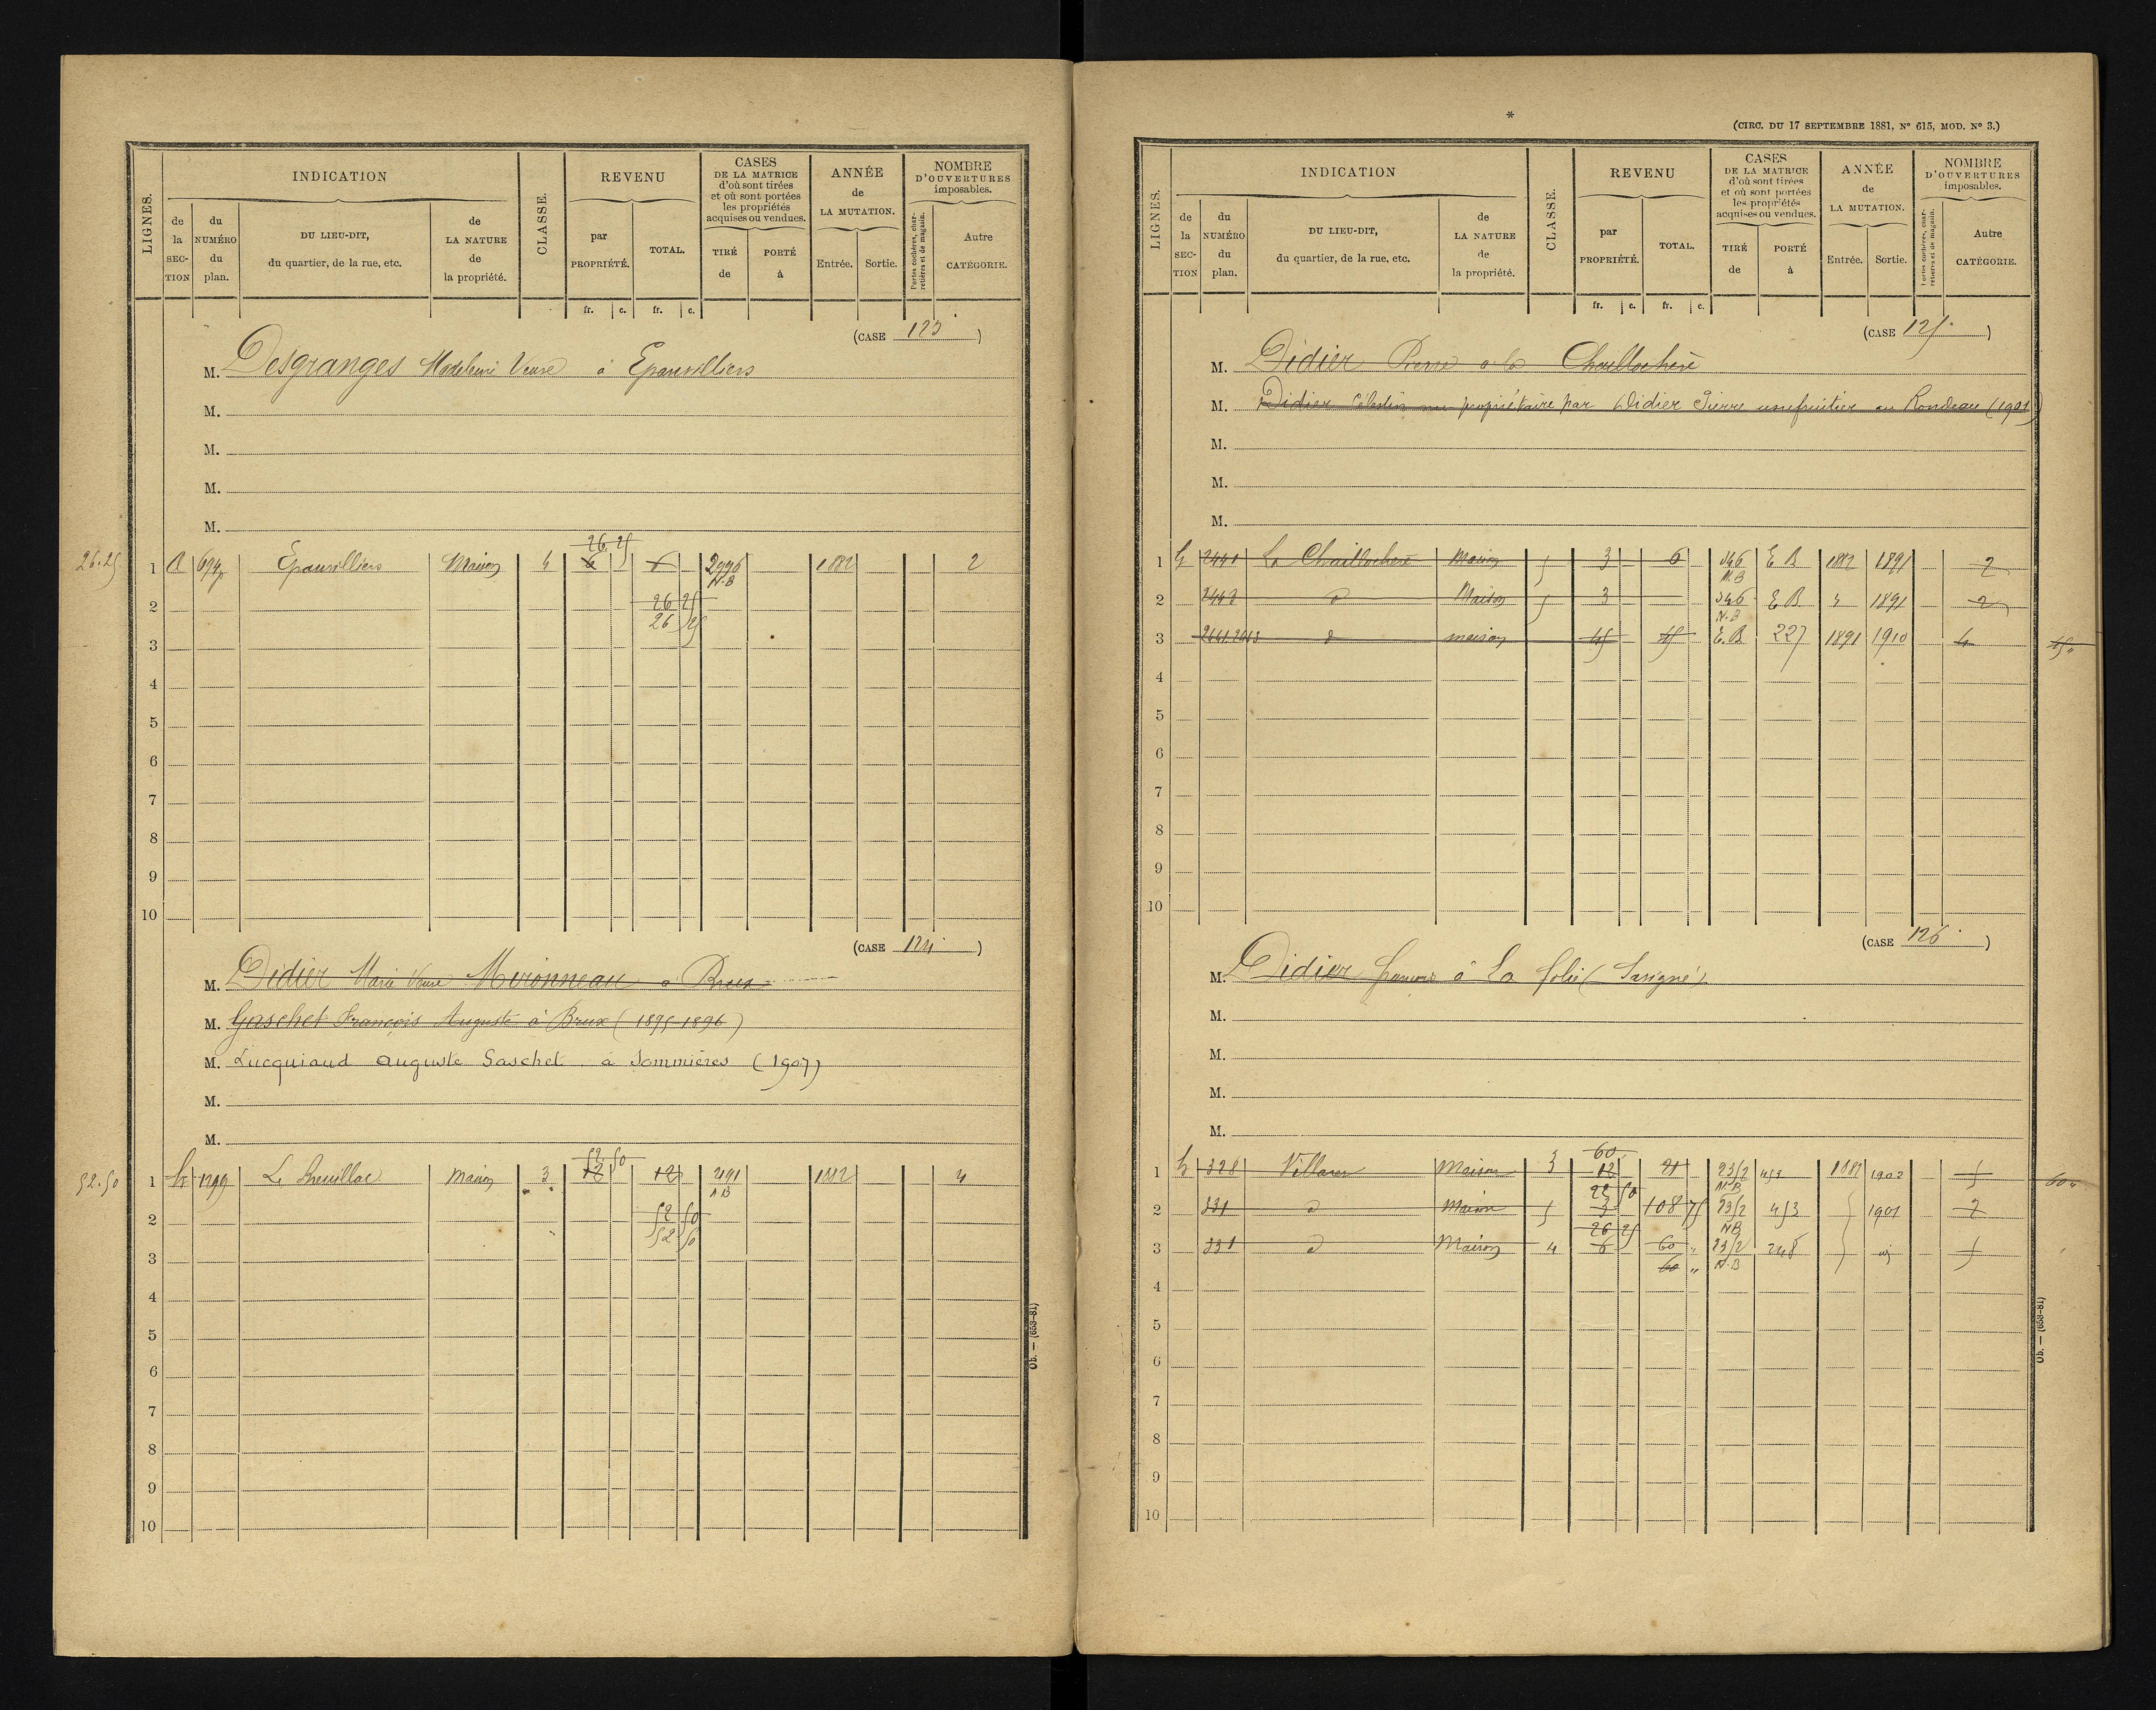 LIGNES.
INDICATION
CLASSE.
REVENU
CASES
DE LA MATRICE
d'où sont tirées
et où sont portées
les propriétés
acquises ou vendues.
ANNÉE
de
LA MUTATION.
NOMBRE
D'OUVERTURES
imposables.
de la SECTION
du NUMÉRO du plan.
DU LIEU-DIT,
du quartier, de la rue, etc.
de LA NATURE de la propriété.
par PROPRIÉTÉ.
TOTAL.
TIRÉ de
PORTÉ à
Entrée.
Sortie.
Portes cochères, charretières et de magasin.
Autre CATÉGORIE.
fr. c. fr. c.
(CASE 123)
M. Desgranges Madeleine Veuve à Epanvilliers
M.
M.
M.
M.
26 25
26.25 1 A 694p Epanvilliers Maison 4 6 6 2996 1882 2
N.B
2 26 25
26 25
3
4
5
6
7
8
9
10
(CASE 124)
M. Didier Marie Veuve Mironneau à Brux
M. Gaschet François Auguste à Brux (1895-1896)
M. Lucquiaud Auguste Gaschet à Sommières (1907)
M.
M.
52.50
52.50 1 1299 Maison 3 12 12 2191 1882 4
NB
2 52 50
52 50
3
4
5
6
7
8
9
10
Ob. — (653-81)
*
(CIRC. DU 17 SEPTEMBRE 1881, N° 615, MOD. N° 3.)
LIGNES.
INDICATION
CLASSE.
REVENU
CASES
DE LA MATRICE
d'où sont tirées
et où sont portées
les propriétés
acquises ou vendues.
ANNÉE
de
LA MUTATION.
NOMBRE
D'OUVERTURES
imposables.
de la SECTION
du NUMÉRO du plan.
DU LIEU-DIT,
du quartier, de la rue, etc.
de LA NATURE de la propriété.
par PROPRIÉTÉ.
TOTAL.
TIRÉ de
PORTÉ à
Entrée.
Sortie.
Portes cochères, charretières et de magasin.
Autre CATÉGORIE.
fr. c. fr. c.
(CASE 125)
M. Didier Pierre à la Chaillochère
M. Didier Célestin nu propriétaire par Didier Pierre usufruitier au Rondeau (1901)
M.
M.
M.
1 2441 La Chaillochère Maison 5 3 6 346 E B 1882 1891 2
N.B
2 2443 d Maison 5 3 346 E B 1891 2
N.B
3 d maison 45 45 E.B 227 1891 1910 4 45
4
5
6
7
8
9
10
(CASE 126)
M. Didier François à La folie (Savigné)
M.
M.
M.
M.
60
1 328 Villaren Maison 3 12 21 2352 453 1882 1902 5 60
22 50 N.B
2 331 d Maison 5 3 108 75 2352 453 1901 2
26 25 NB
3 331 d Maison 4 6 60 2352 248 5
60 N.B
4
5
6
7
8
9
10
Ob. — (653-81)